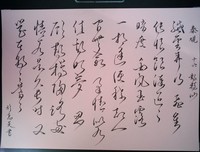 纖雲弄巧飛星
傳恨銀漢迢迢
暗度金風玉露
一相逢便勝却人
間無數柔情似水
佳期如夢忍
顧鵲橋歸路兩
情若是久長時又
豈在朝朝暮暮